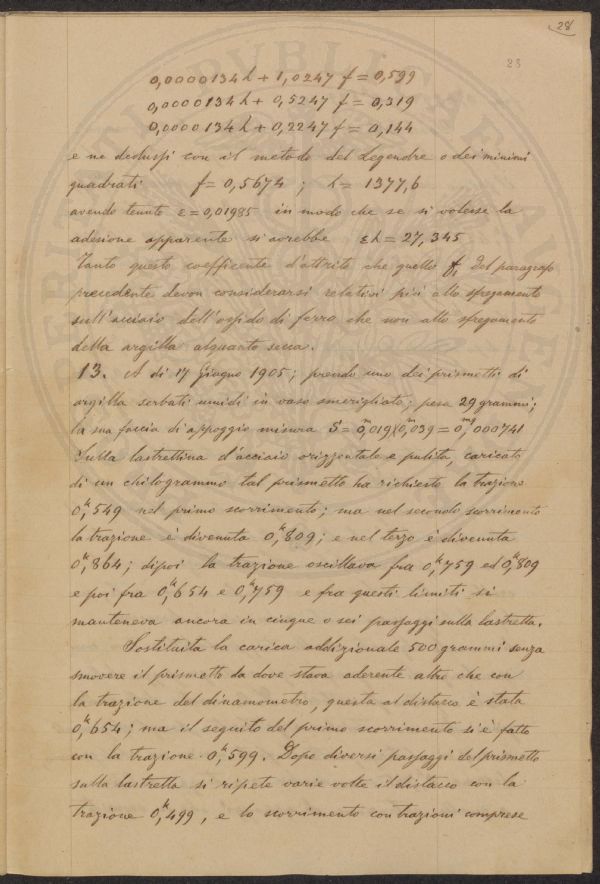 28
23
0,0000134 λ + 1,0247 f = 0,599
0,0000134 λ + 0,5247 f = 0,319
0,0000134 λ + 0,2247 f = 0,144
e ne dedussi con il metodo del Legendre o dei minimi
quadrati f = 0,5674 ; λ = 1377,6
avendo tenuto ε = 0,01985 in modo che se si volesse la
adesione apparente si avrebbe ελ = 27,345
Tanto questo coefficente d'attrito che quello f₁ del paragrafo
precedente devon considerarsi relativi più allo sfregamento
sull'acciaio dell'ossido di ferro che non allo sfregamento
della argilla alquanto secca.
13. A di 17 Giugno 1905; prendo uno dei prismetti di
argilla serbati umidi in vaso smerigliato; pesa 29 grammi;
la sua faccia di appoggio misura S = 0,ᵐ019×0,ᵐ039 = 0,ᵐq000741
Sulla lastrettina d'acciaio orizzontale e pulita, caricato
di un chilogrammo tal prismetto ha richiesto la trazione
0,ᵏ549 nel primo scorrimento; ma nel secondo scorrimento
la trazione è divenuta 0,ᵏ809; e nel terzo è divenuta
0,ᵏ864; dipoi la trazione oscillava fra 0,ᵏ759 ed 0,ᵏ809
e poi fra 0,ᵏ654 e 0,ᵏ759 e fra questi limiti si
manteneva ancora in cinque o sei passaggi sulla lastretta.
Sostituita la carica addizionale 500 grammi senza
smovere il prismetto da dove stava aderente altro che con
la trazione del dinamometro, questa al distacco è stata
0,ᵏ654; ma il seguito del primo scorrimento si è fatto
con la trazione 0,ᵏ599. Dopo diversi passaggi del prismetto
sulla lastretta si ripete varie volte il distacco con la
trazione 0,ᵏ499, e lo scorrimento con trazioni comprese